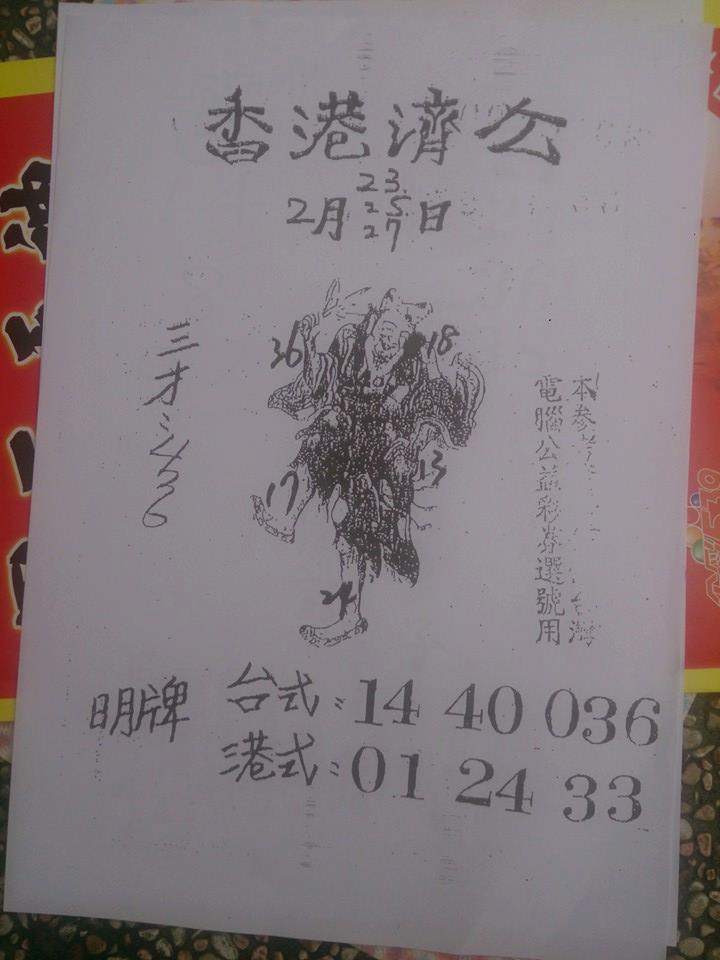 香港濟公
2月
23
25
27
日
36
18
三才:
17
13
24
本參考
台灣
電腦公益彩券選號用
明牌
台式:14 40 036
港式:01 24 33